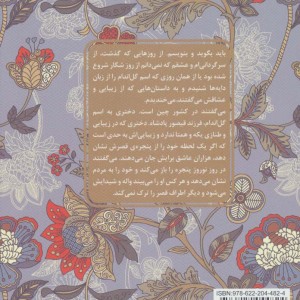 باید بگوید و بنویسم از روزهایی که گذشت، از
سرگردانی‌ام و عشقم که نمی‌دانم از روز شکار شروع
شده بود یا از همان روزی که اسم گل‌اندام را از زبان
دایه‌ها شنیدم و به داستان‌هایی که از زیبایی و
عشاقش می‌گفتند، می‌خندیدم.
می‌گفتند در کشور چین است. دختری به اسم
گل‌اندام. فرزند فیغور پادشاه. دختری که در زیبایی
و طنازی یکه و همتا ندارد و زیبایی‌اش به حدی است
که اگر یک لحظه خود را از پنجره‌ی قصرش نشان
می‌دهد، هزاران عاشق برایش جان می‌دهند. می‌گفتند
در روز نوروز پنجره را باز می‌کند و خود را به مردم
نشان می‌دهد و هر کس او را می‌بیند واله و شیدایش
می‌شود و دیگر اطراف قصر را ترک نمی‌کند.
ISBN:978-622-204-482-4